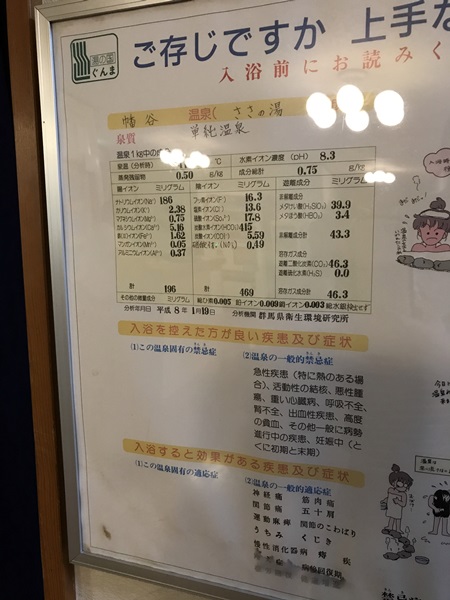 湯の国
ぐんま
ご存じですか 上手な
入浴前にお読みく
幡谷 温泉( ささの湯
泉質 単純温泉
温泉1kg中の
泉温(分析時) ℃ 水素イオン濃度(pH) 8.3
蒸発残留物 0.50 g/kg 成分総計 0.75 g/kg
陽イオン ミリグラム 陰イオン ミリグラム 遊離成分 ミリグラム
ナトリウムイオン(Na⁺) 186 フッ素イオン(F⁻) 16.3 非解離成分
カリウムイオン(K⁺) 2.38 塩素イオン(Cl⁻) 13.6 メタけい酸(H₂SiO₃) 39.9
マグネシウムイオン(Mg²⁺) 0.75 硫酸イオン(SO₄²⁻) 17.8 メタほう酸(HBO₂) 3.4
カルシウムイオン(Ca²⁺) 5.16 炭酸水素イオン(HCO₃⁻) 415
鉄(Ⅱ)イオン(Fe²⁺) 1.62 炭酸イオン(CO₃²⁻) 5.59 非解離成分計 43.3
マンガンイオン(Mn²⁺) 0.05 0.49
アルミニウムイオン(Al³⁺) 0.37 溶存ガス成分
遊離二酸化炭素(CO₂) 46.3
遊離硫化水素(H₂S) 0.0
溶存ガス成分計 46.3
計 196 計 469
その他の微量成分 ミリグラム 総ひ素0.005 銅イオン0.009 鉛イオン0.003 総水銀検出せず
分析年月日 平成8年1月19日 分析機関 群馬県衛生環境研究所
入浴を控えた方が良い疾患及び症状
(1)この温泉固有の禁忌症 (2)温泉の一般的禁忌症
急性疾患(特に熱のある場
合)、活動性の結核、悪性腫
瘍、重い心臓病、呼吸不全、
腎不全、出血性疾患、高度
の貧血、その他一般に病勢
進行中の疾患、妊娠中(と
くに初期と末期)
入浴すると効果がある疾患及び症状
(1)この温泉固有の適応症 (2)温泉の一般的適応症
神経痛 筋肉痛
関節痛 五十肩
運動麻痺 関節のこわばり
うちみ くじき
慢性消化器病 痔疾
病後回復期